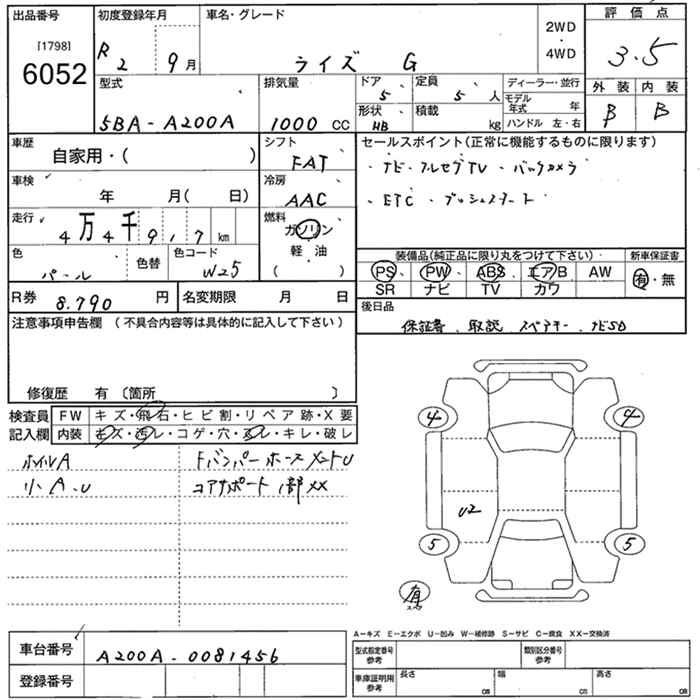 出品番号
[1798]
6052
初度登録年月
R 2 9月
車名・グレード
ライズ G
2WD
・
4WD
評価点
3.5
外装 内装
B B
型式
5BA-A200A
排気量
1000 CC
ドア
5
定員
5 人
形状
HB
積載
kg
ディーラー・並行
モデル年式 年
ハンドル 左・右
車歴
自家用・( )
シフト
FAT
車検
年 月( 日)
冷房
AAC
走行
4万4千917km
燃料
ガソリン
軽・油
( )
色
パール
色替
色コード
W25
R券 8.790 円
名変期限 月 日
セールスポイント(正常に機能するものに限ります)
・ナビ・フルセグTV・バックカメラ
・ETC・プッシュスタート
装備品(純正品に限り丸をつけて下さい)
PS PW ABS エアB AW
SR ナビ TV カワ
新車保証書
有・無
後日品
保証書、取説 スペアキー、ナビSD
注意事項申告欄 (不具合内容等は具体的に記入して下さい)
修復歴 有 〔箇所 〕
検査員記入欄
FW キズ・飛石・ヒビ割・リペア跡・X要
内装 キズ・汚レ・コゲ・穴・スレ・キレ・破レ
ホイルA
小A.U
Fバンパーホースメント U
コアサポート1部XX
4 4
U2
5 5
有
スペア
車台番号 A200A-0081456
登録番号
A-キズ E-エクボ U-凹み W-補修跡 S-サビ C-腐食 XX-交換済
型式指定番号
参考
類別区分番号
参考
車庫証明用
参考
長さ cm
幅 cm
高さ cm